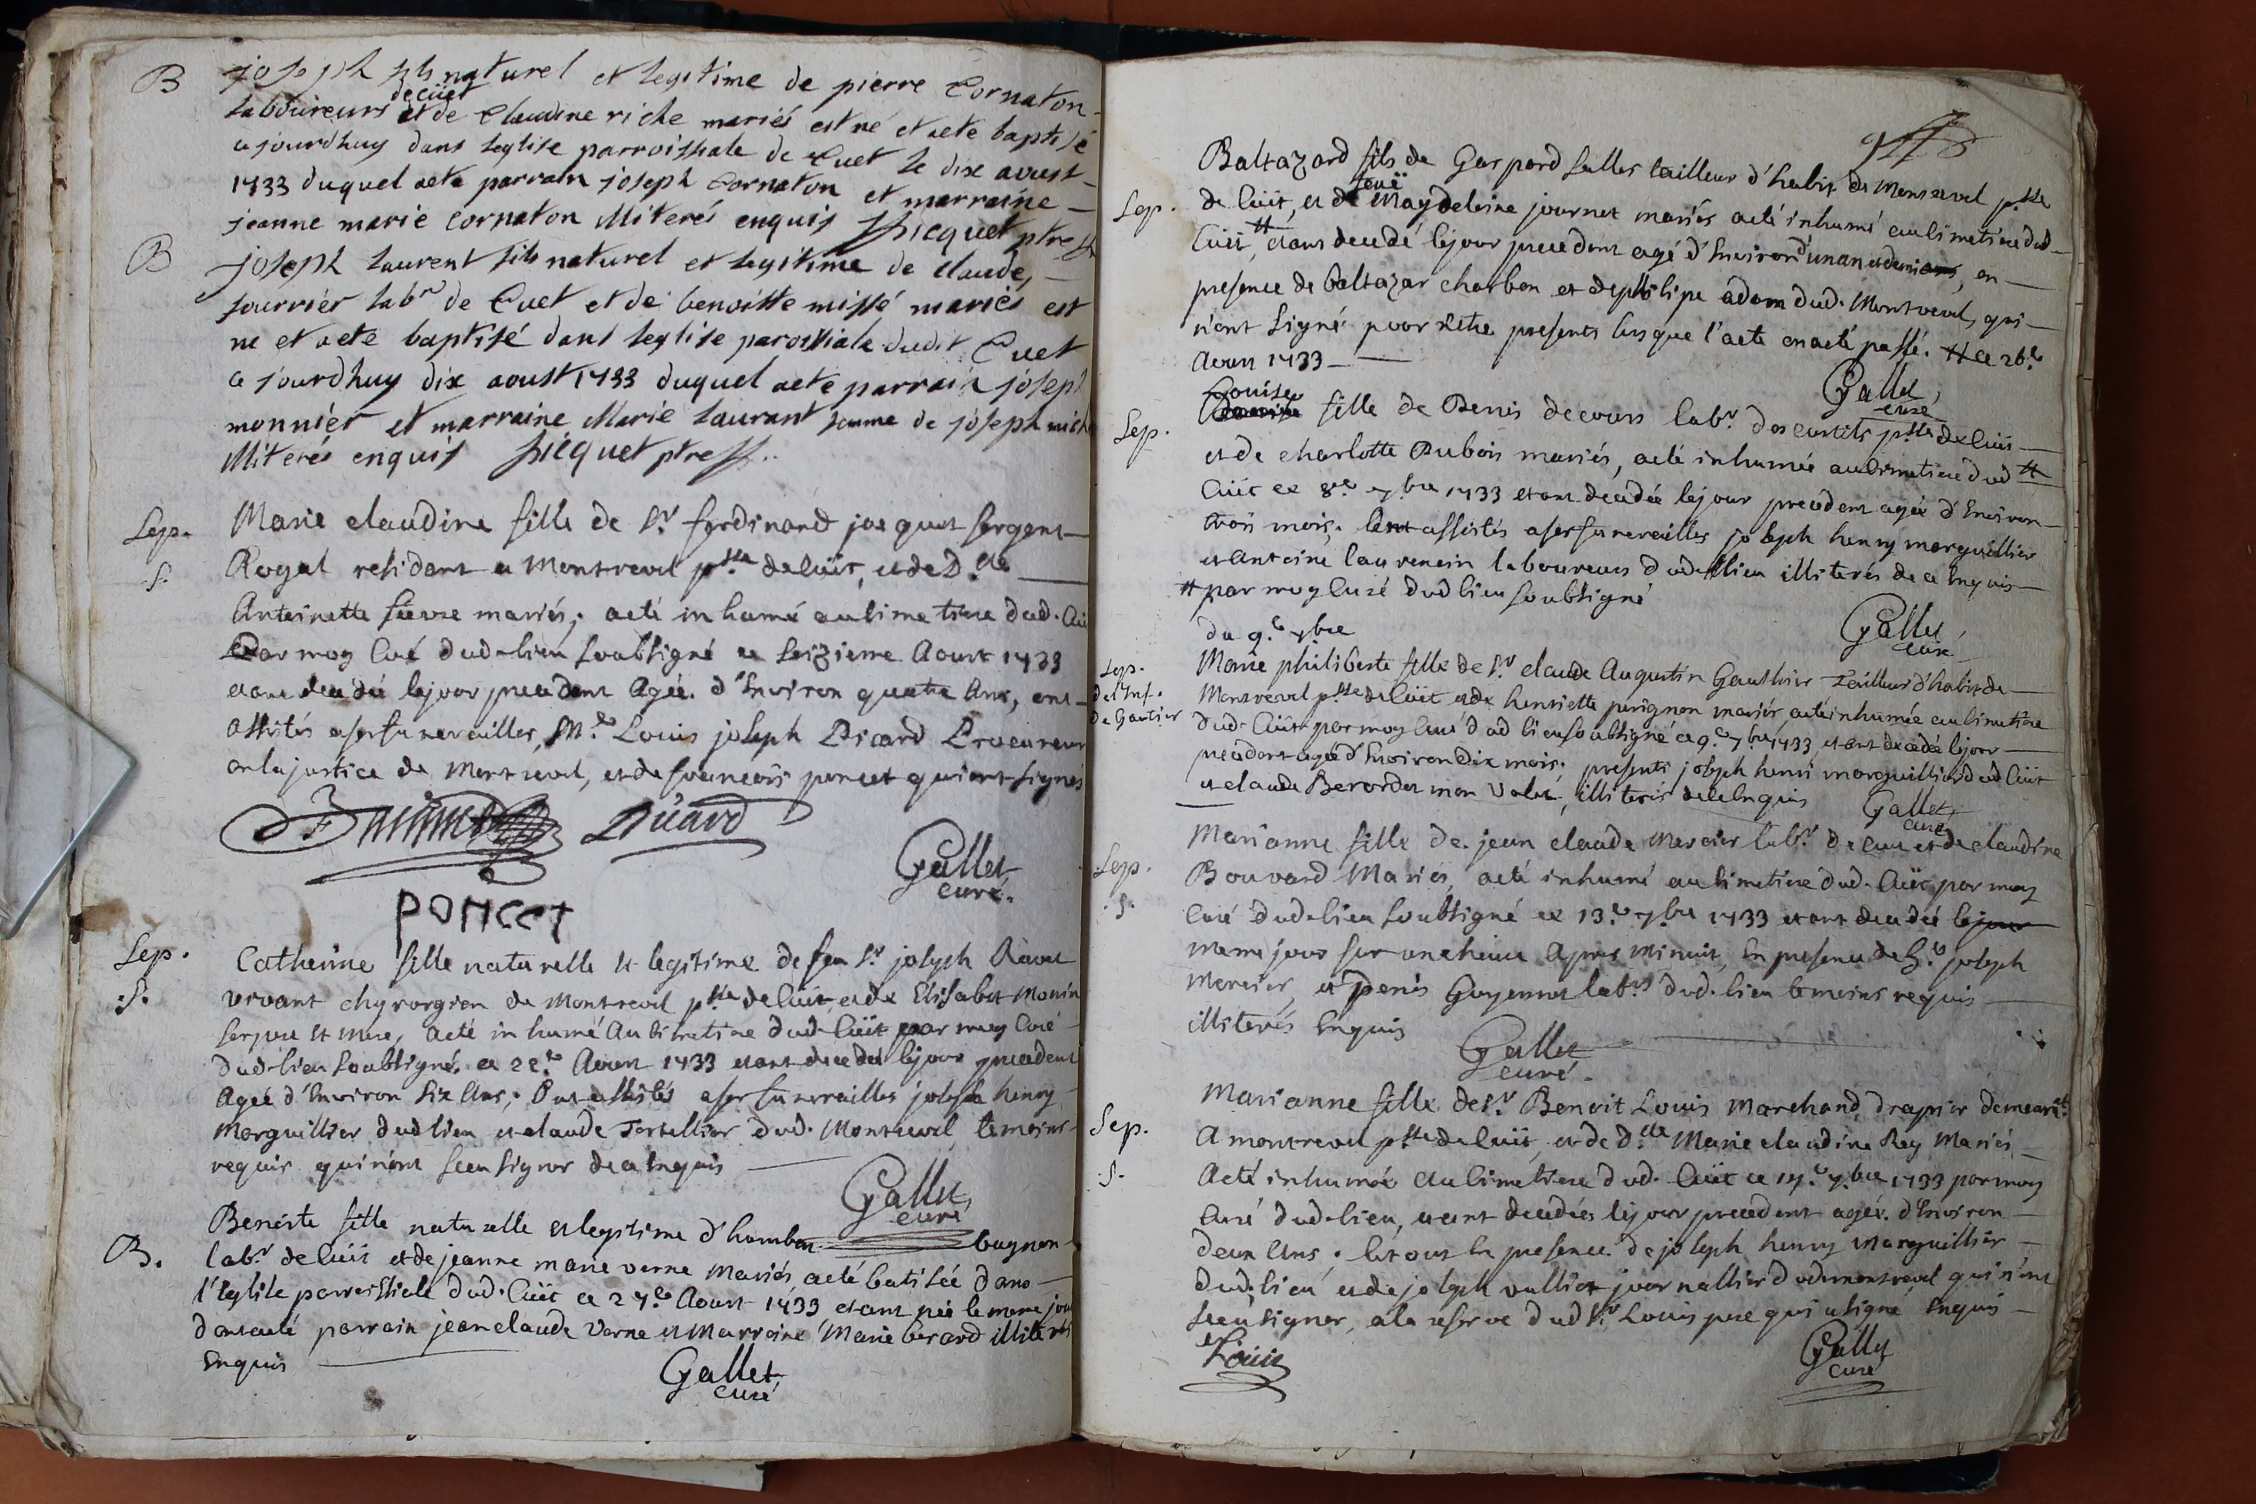 B
joseph fils naturel et legitime de pierre Cornaton
laboureurs de cüet et de Claudine riche mariés est né et a ete baptisé
ajourdhuy dans leglise parroissiale de Cuet le dix aoust
1733 duquel a ete parrain joseph Cornaton et marraine
jeanne marie cornaton illiterés enquis picquet ptre
B
joseph laurent fils naturel et legitime de claude
fourrier labr de Cuet et de benoitte missé mariés est
ne et a ete baptisé dans leglise paroissiale dudit Cuet
a jourdhuy dix aoust 1733 duquel a ete parrain joseph
monnier et marraine Marie laurant femme de joseph
illiterés enquis picquet ptre
Sep.
.S.
Marie claudine fille de Sr ferdinand jacquet sergent
Royal residant a Montrevel psse de Cüit, et de D.lle
Antoinette mariés, a eté inhumé au Cimetiere dud. Cüit
Par moy Curé dud. lieu soubsigné ce seizieme Aoust 1733
etant decedée le jour precedent Agée d'Environ quatre Ans, ont
assistés a ses funerailles, Me Louis joseph Picard Procureur
en la justice de Montrevel, et de francois poncet qui ont signés
Picard
Gallet
curé.
PONCET
Sep.
.S.
Catherine fille naturelle et legitime de feu Sr joseph Ravet
vivant chyrorgien de Montrevel psse de Cuit, et de Elisabet Monin
ses pere et mere, a eté inhumé Au Cimetiere dud. Cüit par moy Curé
dud. lieu soubsigné ce 22.e Aoust 1733 etant decedée le jour precedent
Agée d'Environ six Ans; Ont assistés a ses funerailles joseph henry
Marguillier dud lieu et claude Tortellier dud. Montrevel temoins
requis qui n'ont sceu signer de ce Enquis
Gallet
curé
B.
Benoite fille naturelle et legitime d'humbert bugnon
labr de Cüit et de jeanne marie verne Mariés a eté batisée dans
l'Eglise parroissiale dud. Cüit ce 27.e Aoust 1733 etant née le meme jour
dont a eté parrain jean claude Verne et Marraine Marie berard illiterés
Enquis
Gallet
curé
Sep.
Baltazard fils de Gaspard Salles tailleur d'habit de Montrevel psse
de Cüit, et de feuë Magdeleine journet mariés a eté inhumé au Cimetiere dud
Cüit # etant decedé le jour precedent agé d'Environ d'un an et demi, en
presence de baltazar charbon et de philipe adam dud. Montrevel, qui
n'ont signé pour n'etre presents lorsque l'acte en a eté passé. # ce 26.e
Aoust 1733
Gallet
curé
Sep.
Louise
fille de Denis decours labr des curtils psse de Cüit
et de charlotte Dubois mariés, a eté inhumée au Cimetiere dud #
Cüit ce 8.e 7.bre 1733 etant decedée le jour precedent agée d'Environ
trois mois, ont assistés a ses funerailles joseph henry marguillier
et Antoine laurencin laboureurs dud. lieu illiterés de ce Enquis
# par moy Curé dud lieu soubsigné
Gallet
curé
du 9.e 7bre
Sep.
de l'Enf.
de Gautier
Marie philiberte fille de Sr claude Augustin Gauthier Tailleur d'habit de
Montrevel psse de Cüit et de henriette perignon mariés a eté inhumée au Cimetiere
dud. Cüit par moy Curé dud lieu soubsigné ce 9.e 7.bre 1733 etant decedée le jour
precedent agée d'Environ dix mois. presents joseph henri marguillier dud Cüit
et claude Berardet mon Valet, illiterés de ce Enquis
Gallet
curé
Sep.
.S.
Marianne fille de jean claude Mercier labr de Cüit et de claudine
Bouvard Mariés, a eté inhumé au Cimetiere dud. Cüit par moy
Curé dud. lieu soubsigné ce 13.e 7bre 1733 etant decedée le jour
meme jour sur une heure Apres Minuit, En presence de joseph
Mercier, et Denis Guyennet labrs dud. lieu temoins requis
illiterés Enquis
Gallet
curé.
Sep.
.S.
Marianne fille de Sr Benoit Louis Marchand drapier demeurt
A montrevel psse de Cüit, et de D.lle Marie claudine Rey Mariés
A eté inhumée au Cimetiere dud. Cüit ce 17.e 7.bre 1733 par moy
Curé dud. lieu, etant decedée le jour precedent agée d'Environ
deux Ans, le tout En presence de joseph henry Marguillier
dud. lieu et de joseph vullier journallier dud. montrevel qui n'ont
sceu signer, a la reserve dud Sr. Louis pere qui a signé Enquis
Louis
Gallet
curé